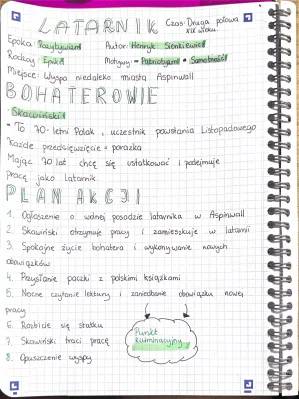 LATARNIK Czas: Druga połowa XIX wieku.
Epoka: Pozytywizm Autor: Henryk Sienkiewicz
Rodzaj: Epika Motywy: • Patriotyzm • Samotność
Miejsce: Wyspa niedaleko miasta Aspinwall
BOHATEROWIE
Skawiński
- To 70-letni Polak, uczestnik powstania listopadowego
Każde przedsięwzięcie = porażka
Mając 70 lat chcę się ustatkować i podejmuje
pracę jako latarnik
PLAN AKCJI
1. Ogłoszenie o wolnej posadzie latarnika w Aspinwall
2. Skawiński otrzymuje pracy i zamieszkuje w latarni
3. Spokojne życie bohatera i wykonywanie nowych
obowiązków
4. Przysłanie paczki z polskimi książkami
5. Nocne czytanie lektury i zaniedbanie obowiązku nowej
pracy
6. Rozbicie się statku
7. Skawiński traci pracę
8. Opuszczenie wyspy
Punkt
kulminacyjny